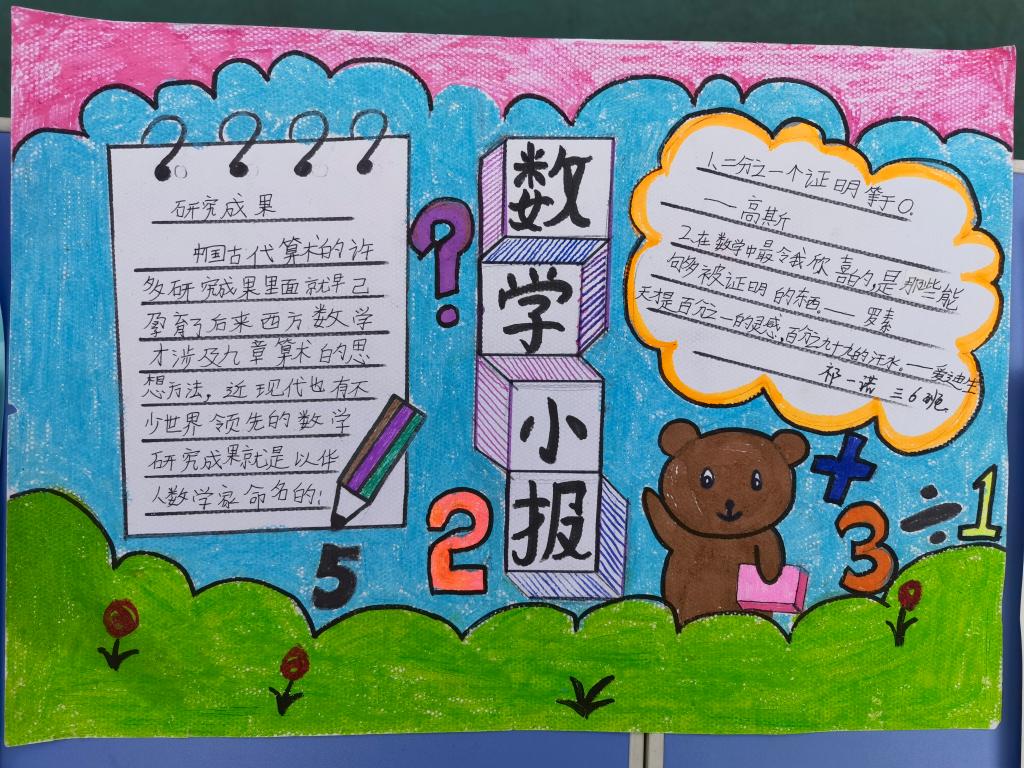 研究成果
中国古代算术的许
多研究成果里面就早已
孕育了后来西方数学
才涉及九章算术的思
想方法，近现代也有不
少世界领先的数学
研究成果就是以华
人数学家命名的：
?
数
学
小
报
1、二分之一个证明等于0。
——高斯
2.在数学中最令我欣喜的,是那些能
够被证明的东西。——罗素
天才是百分之一的灵感,百分之九十九的汗水。——爱迪生
祁一诺 三6班.
5
2
+
3
÷
1